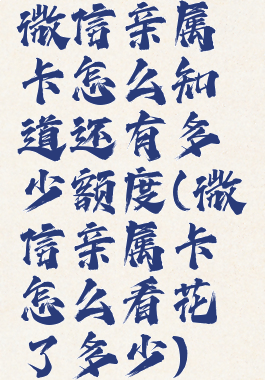 微信亲属
卡怎么知
道还有多
少额度(微
信亲属卡
怎么看花
了多少)